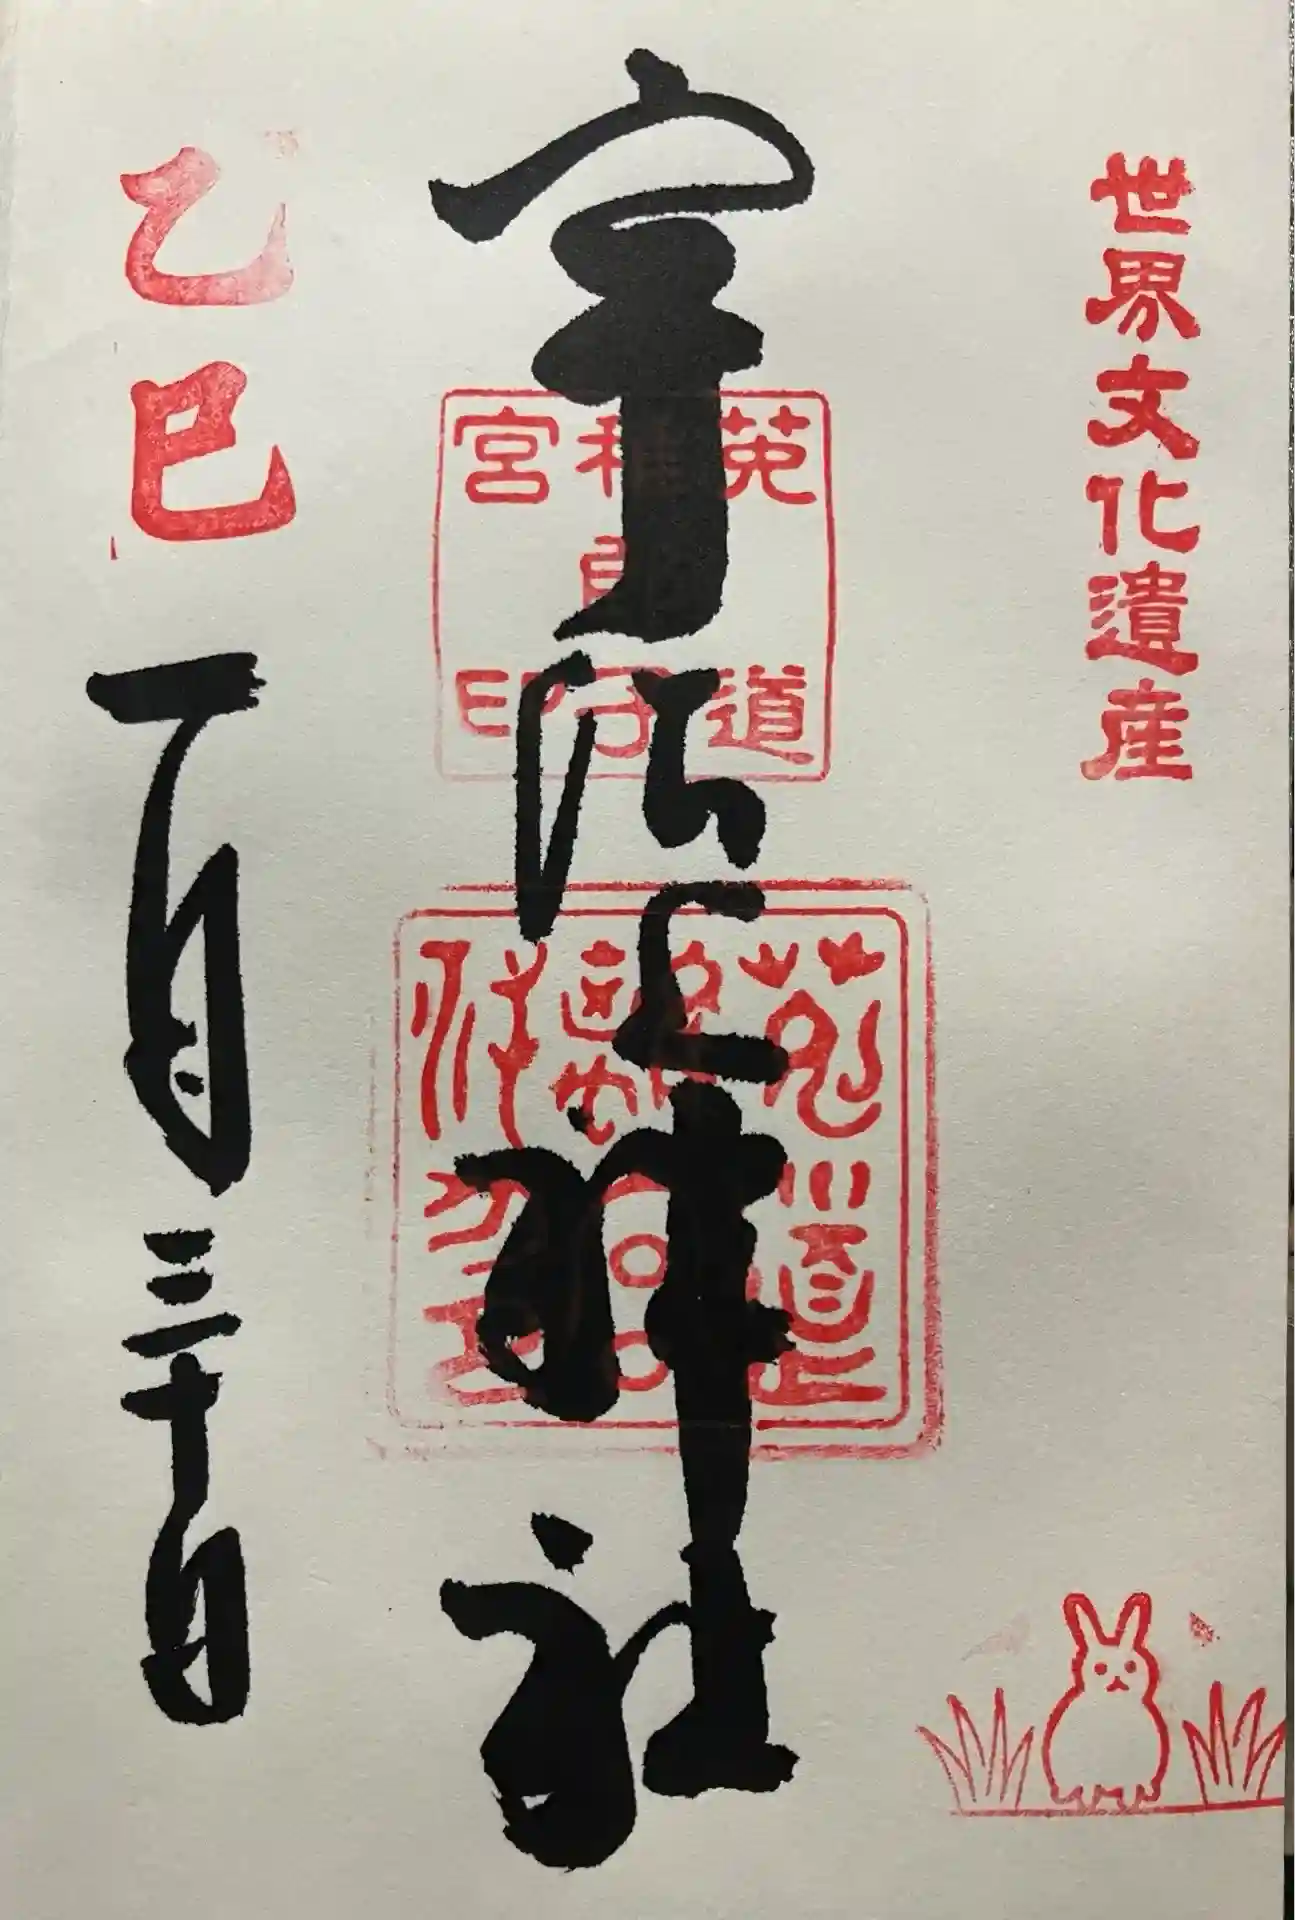 世界文化遺産
宇治上神社
菟道
稚郎子
宮印
乙巳
一月三十日